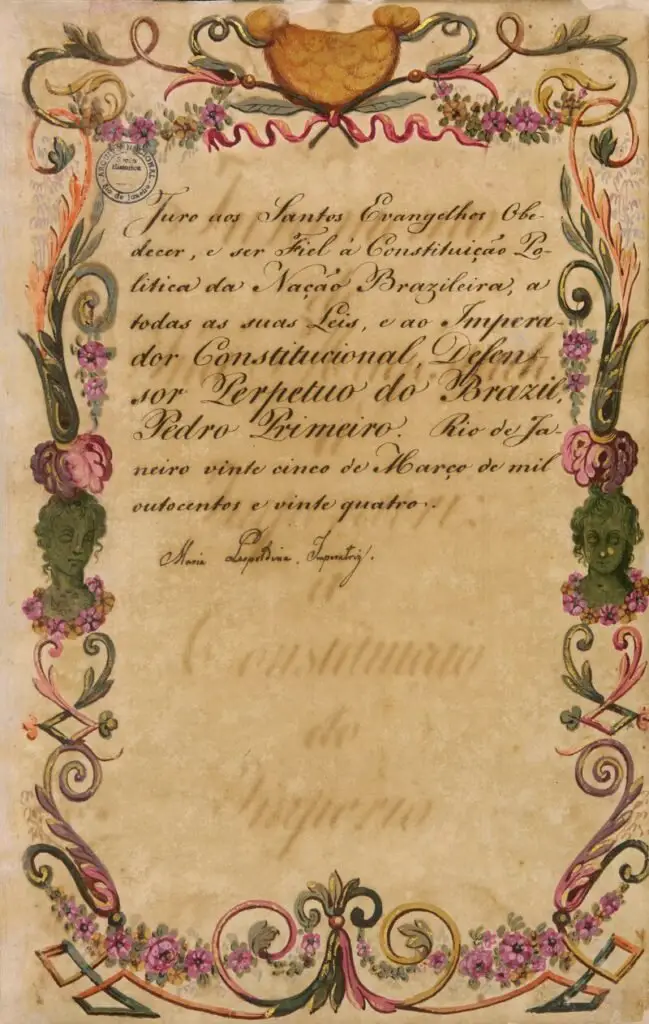 ARQUIVO NACIONAL
Rio de Janeiro
Juro aos Santos Evangelhos Obe-
decer, e ser Fiel á Constituição Po-
litica da Nação Brazileira, a
todas as suas Leis, e ao Impera-
dor Constitucional, Defen-
sor Perpetuo do Brazil,
Pedro Primeiro. Rio de Ja-
neiro vinte cinco de Março de mil
outocentos e vinte quatro.
Maria Leopoldina Imperatriz.
do
Imperio